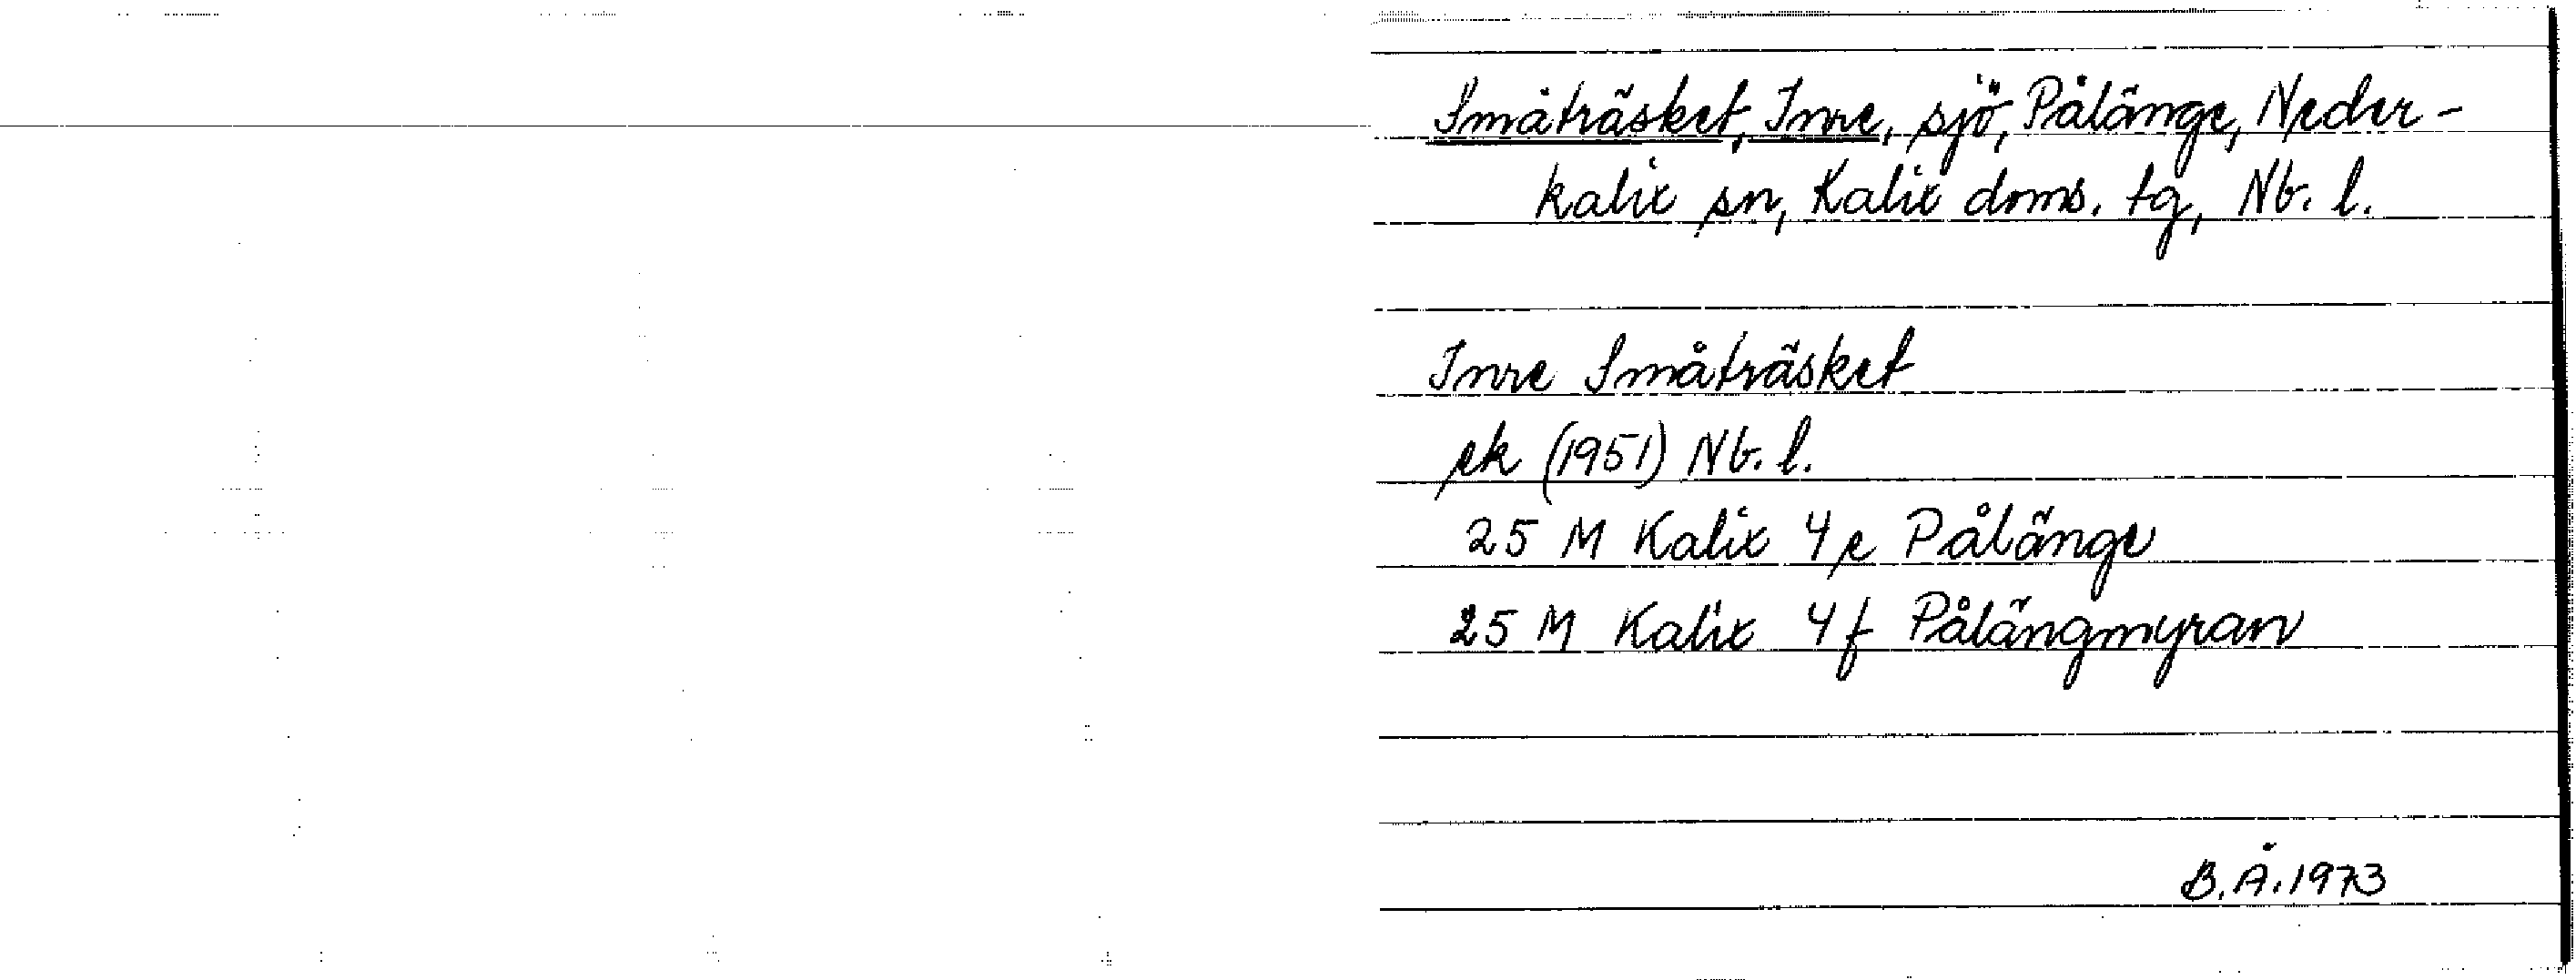 Småträsket, Inre, sjö, Pålänge, Neder-
kalix sn, Kalix doms. tg, Nb. l.
Inre Småträsket
ek (1951) Nb. l.
25 M Kalix 4 e Pålänge
25 M Kalix 4 f Pålängmyran
B. Å. 1973